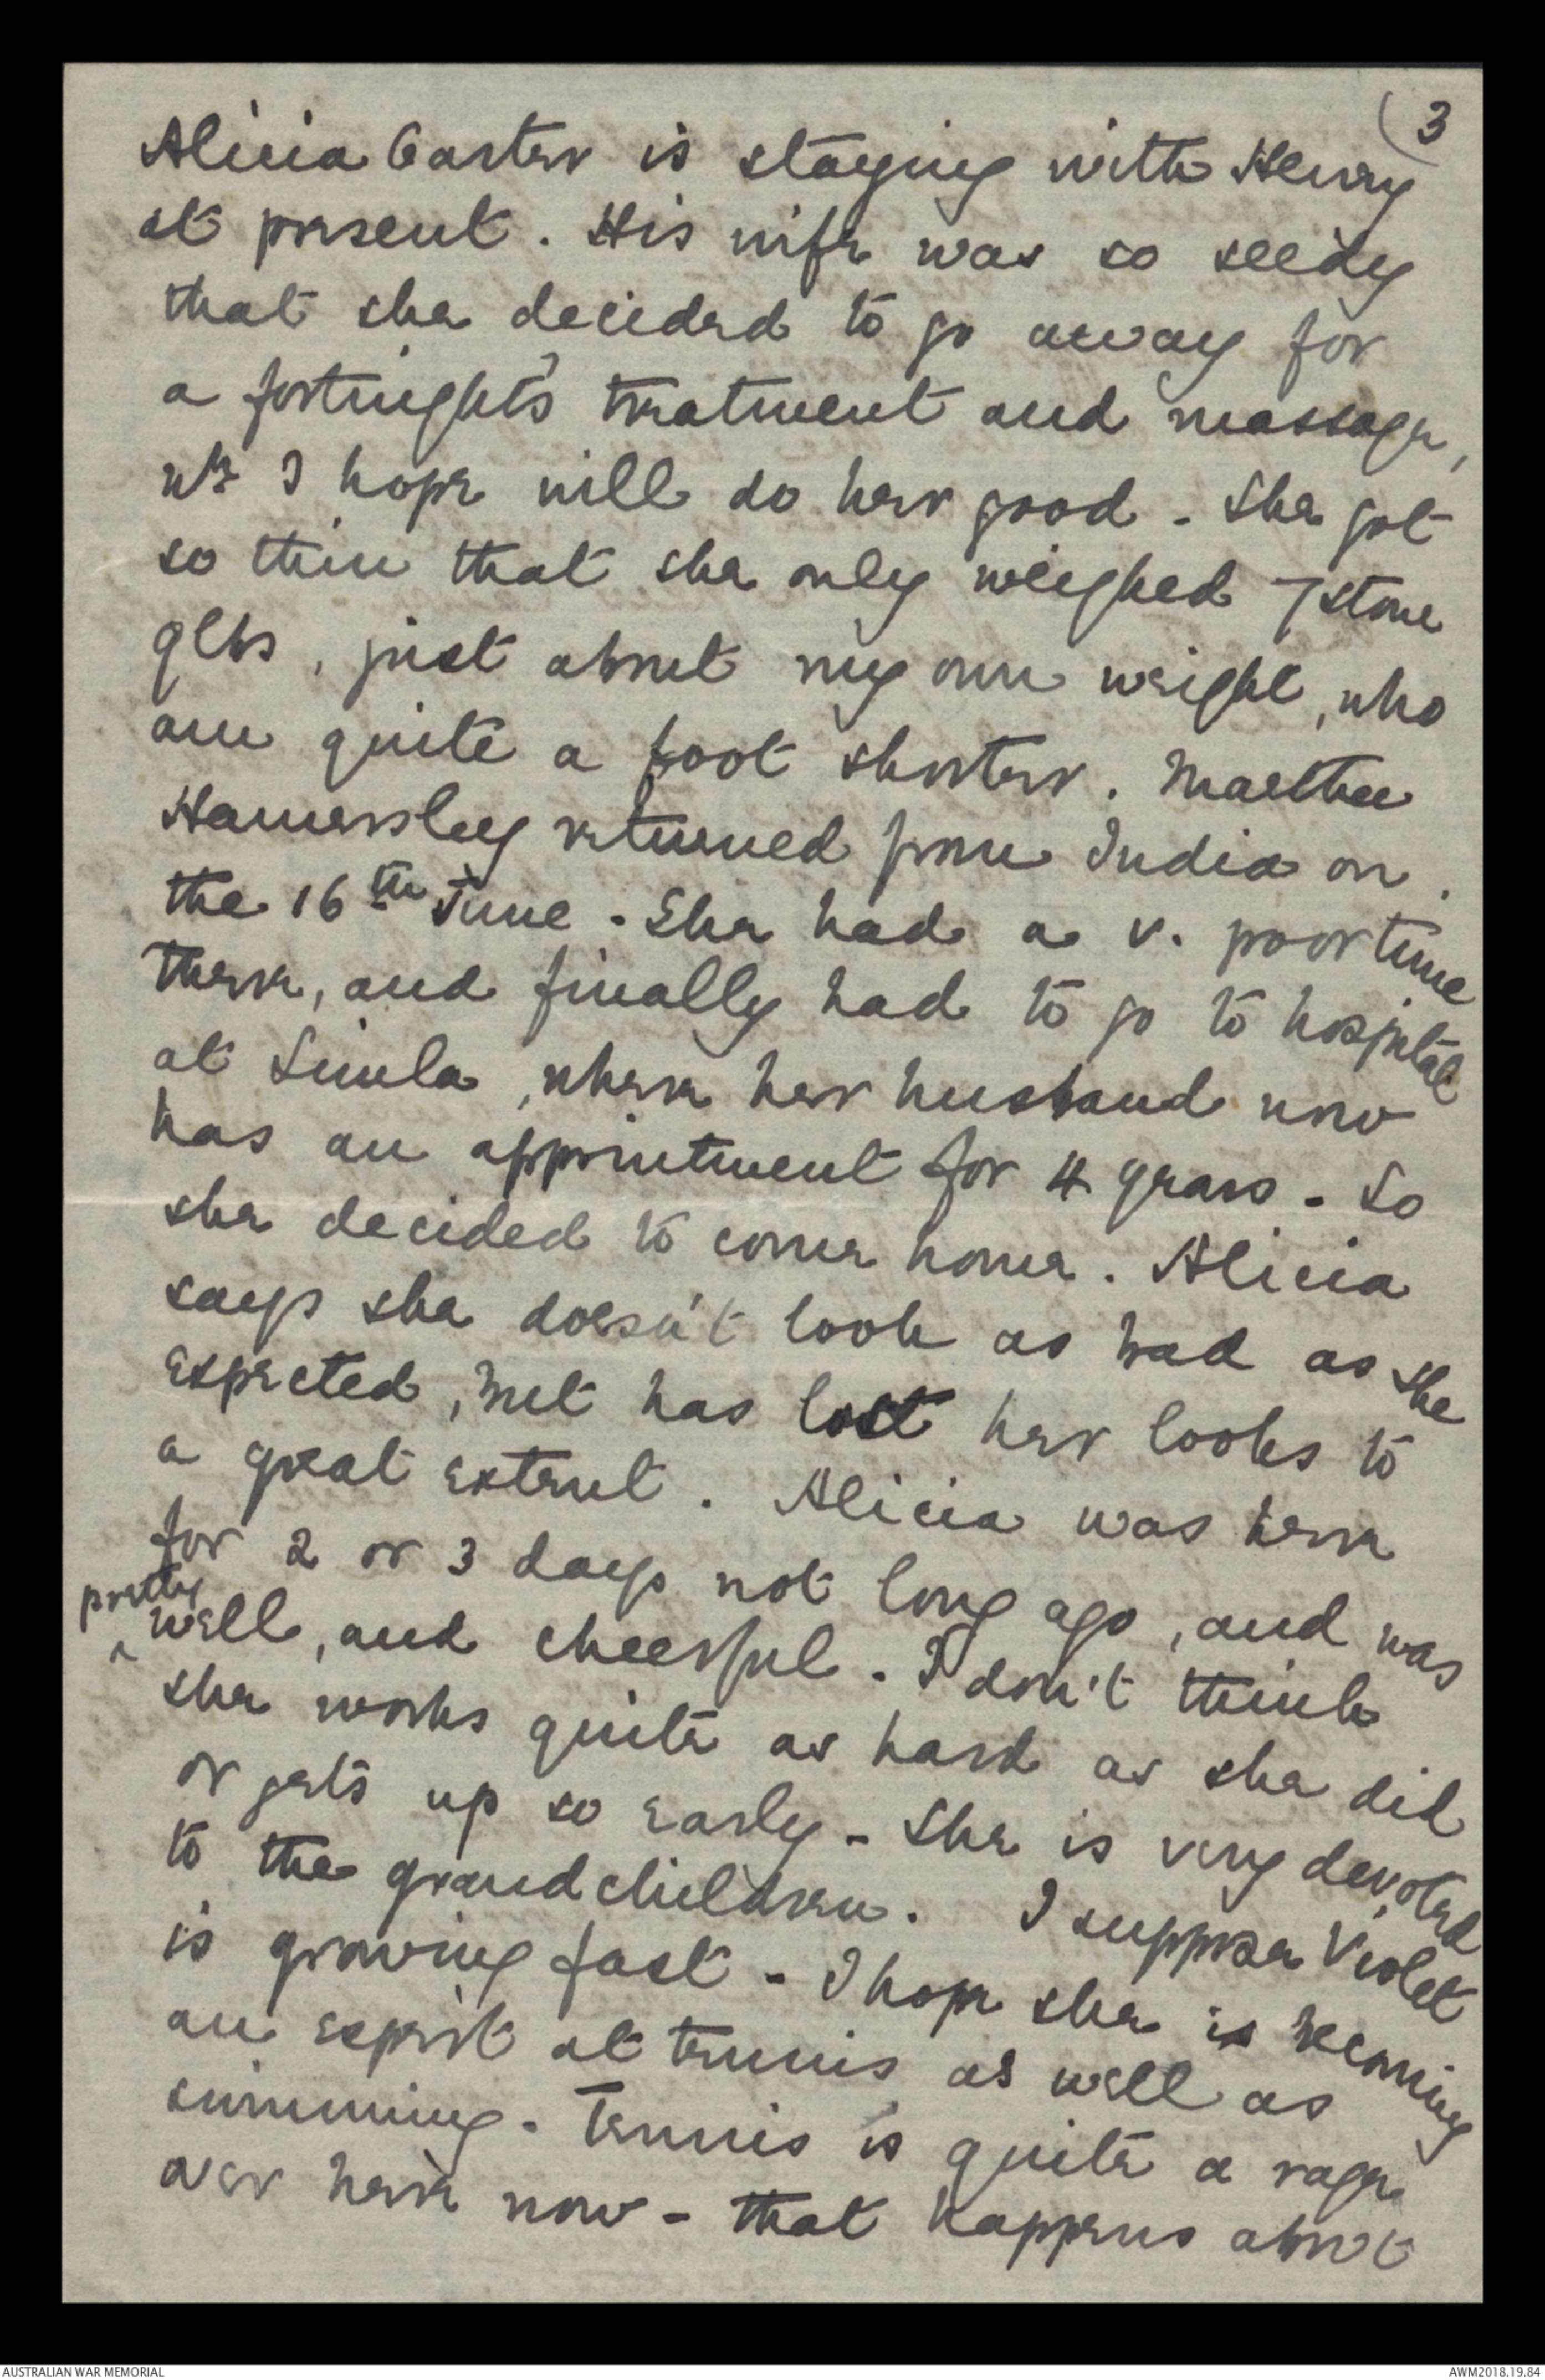 (3
Alicia Carter is staying with Henry
at present. His wife was so seedy
that she decided to go away for
a fortnight's treatment and massage,
wh I hope will do her good - She got
so thin that she only weighed 7 stone
9lbs, just about my own weight, who
am quite a foot shorter. Marthe
Hamersley returned from India on
the 16th June - She had a v. poor time
there, and finally had to go to hospital
at Simla, where her husband now
has an appointment for 4 years - So
she decided to come home. Alicia
says she doesn't look as bad as she
expected, but has lost her looks to
a great extent. Alicia was here
for 2 or 3 days not long ago, and was
pretty
^ well, and cheerful - I don't think
she works quite as hard as she did
or gets up so early - She is very devoted
to the grandchildren. I suppose Violet
is growing fast - I hope she is becoming
an expert at tennis as well as
swimming - Tennis is quite a rage
over here now - that happens about
AUSTRALIAN WAR MEMORIAL
AWM2018.19.84